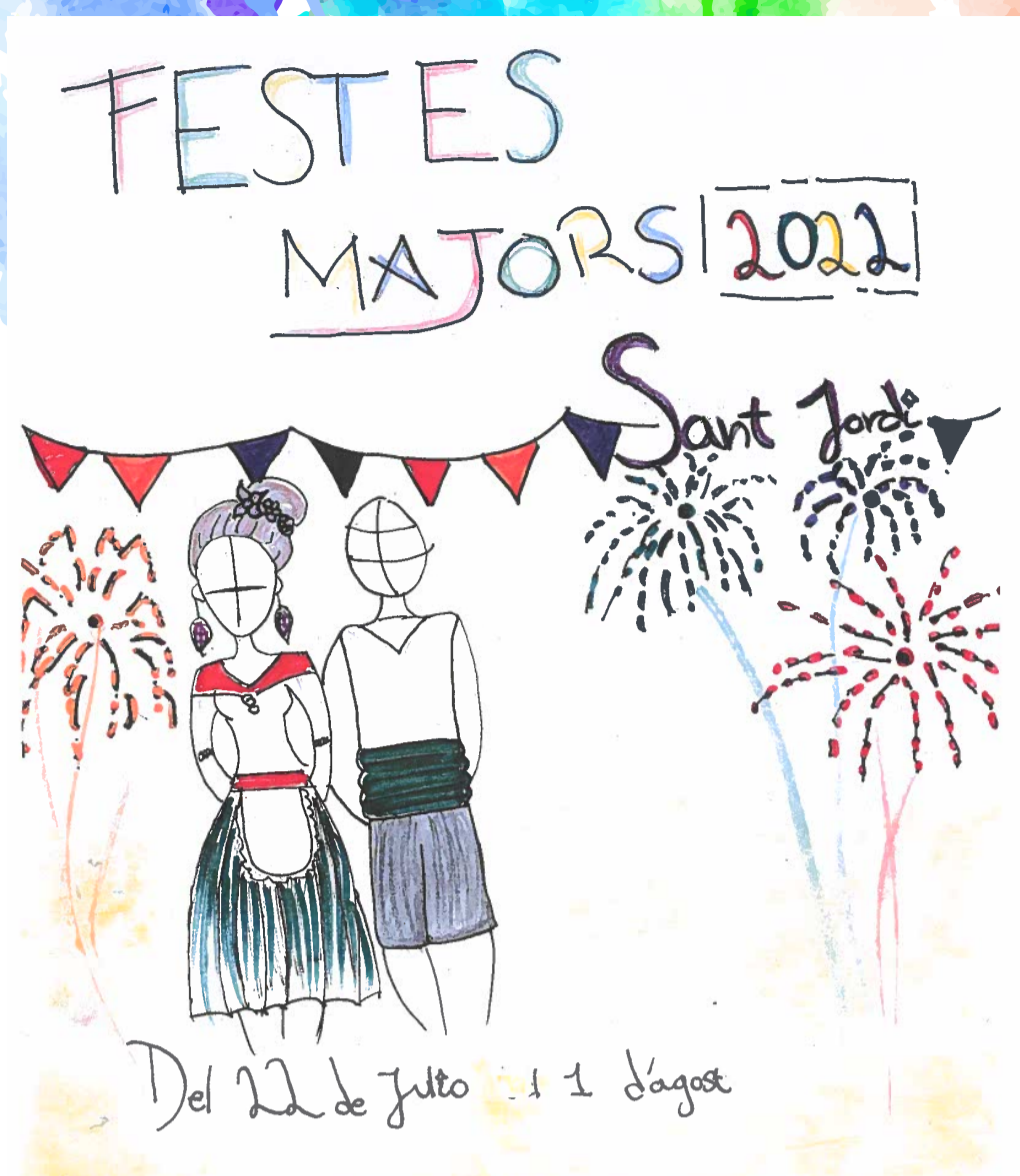 FESTES
MAJORS 2022
Sant Jordi
Del 22 de Julio al 1 d'agost